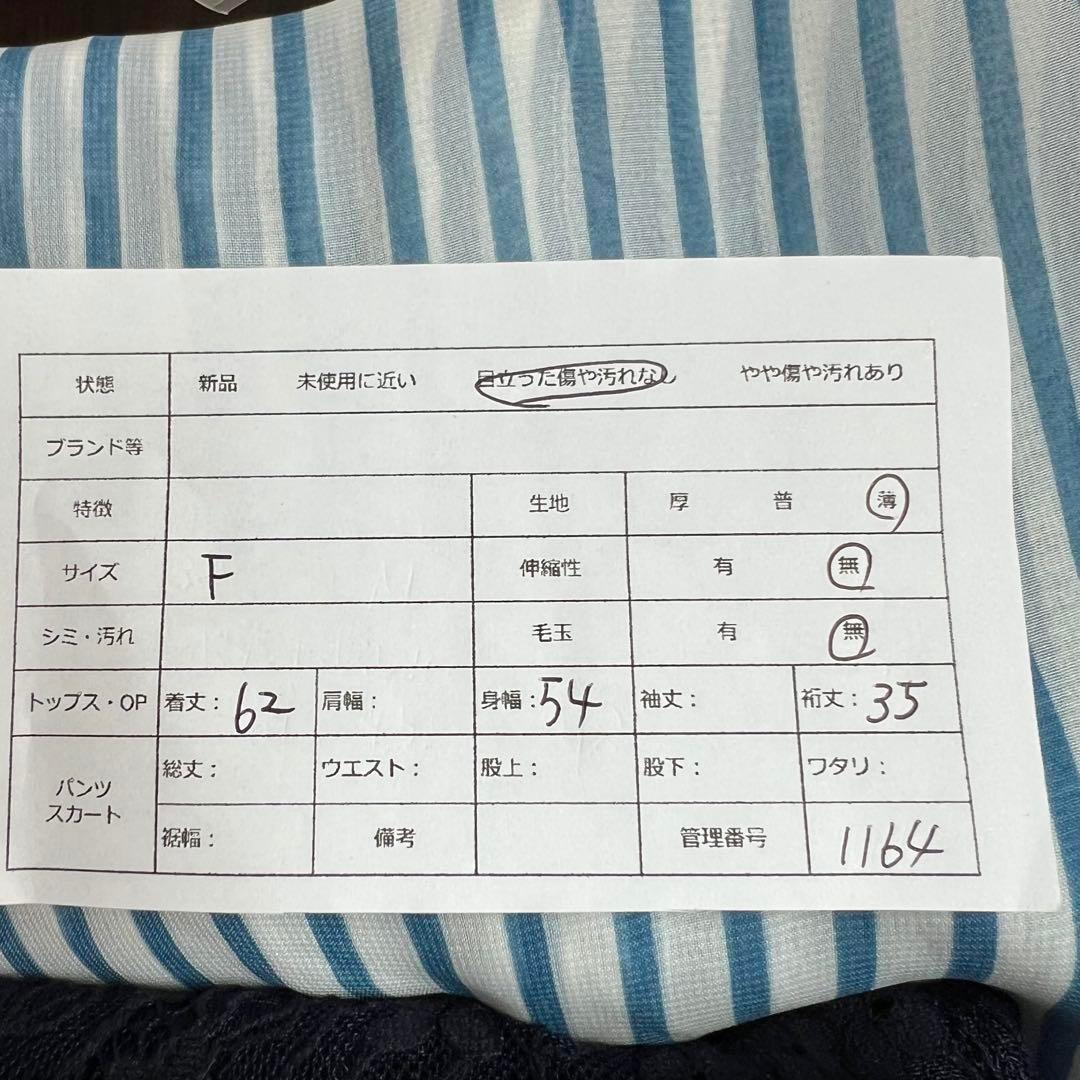 状態 新品 未使用に近い 目立った傷や汚れなし やや傷や汚れあり
ブランド等
特徴 生地 厚 普 薄
サイズ F 伸縮性 有 無
シミ・汚れ 毛玉 有 無
トップス・OP 着丈：62 肩幅： 身幅：54 袖丈： 裄丈：35
パンツ
スカート
総丈： ウエスト： 股上： 股下： ワタリ：
裾幅： 備考 管理番号 1164